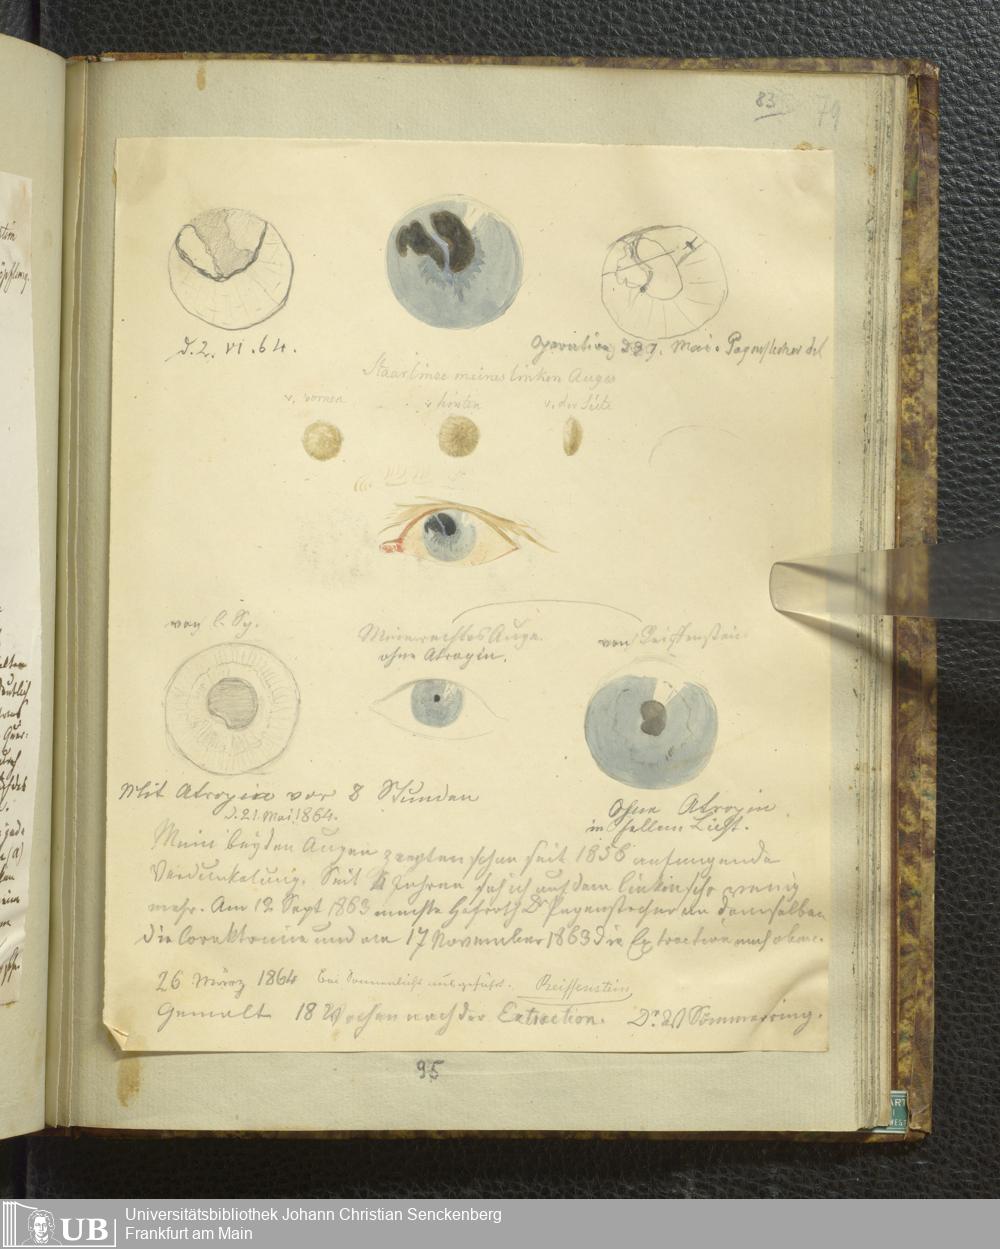 83 79
d. 2. VI. 64.
Operation d 27. Mai. Pagenstecher del
Staarlinse meines linken Auges
v. vornen v. hinten v. der Seite
von
Mein rechtes Auge
ohne Atropin.
von Reiffenstein
Mit Atropin vor 8 Stunden
d. 21. Mai 1864.
Ohne Atropin
in hellem Licht.
Mein beyden Augen zeigten schon seit 1856 anfangende
Verdunkelung. Seit Jahren sah ich auf dem linken sehr wenig
mehr. Am 12 Sept 1863 machte Hofrath Dr Pagenstecher an demselben
die und am 17 November 1863 die Extraction nach oben.
26 März 1864 bei Sonnenlicht ausgeführt. Reiffenstein
Gemalt 18 Wochen nach der Extraction. Dr. W Sömmerring.
95
UB
Universitätsbibliothek Johann Christian Senckenberg
Frankfurt am Main